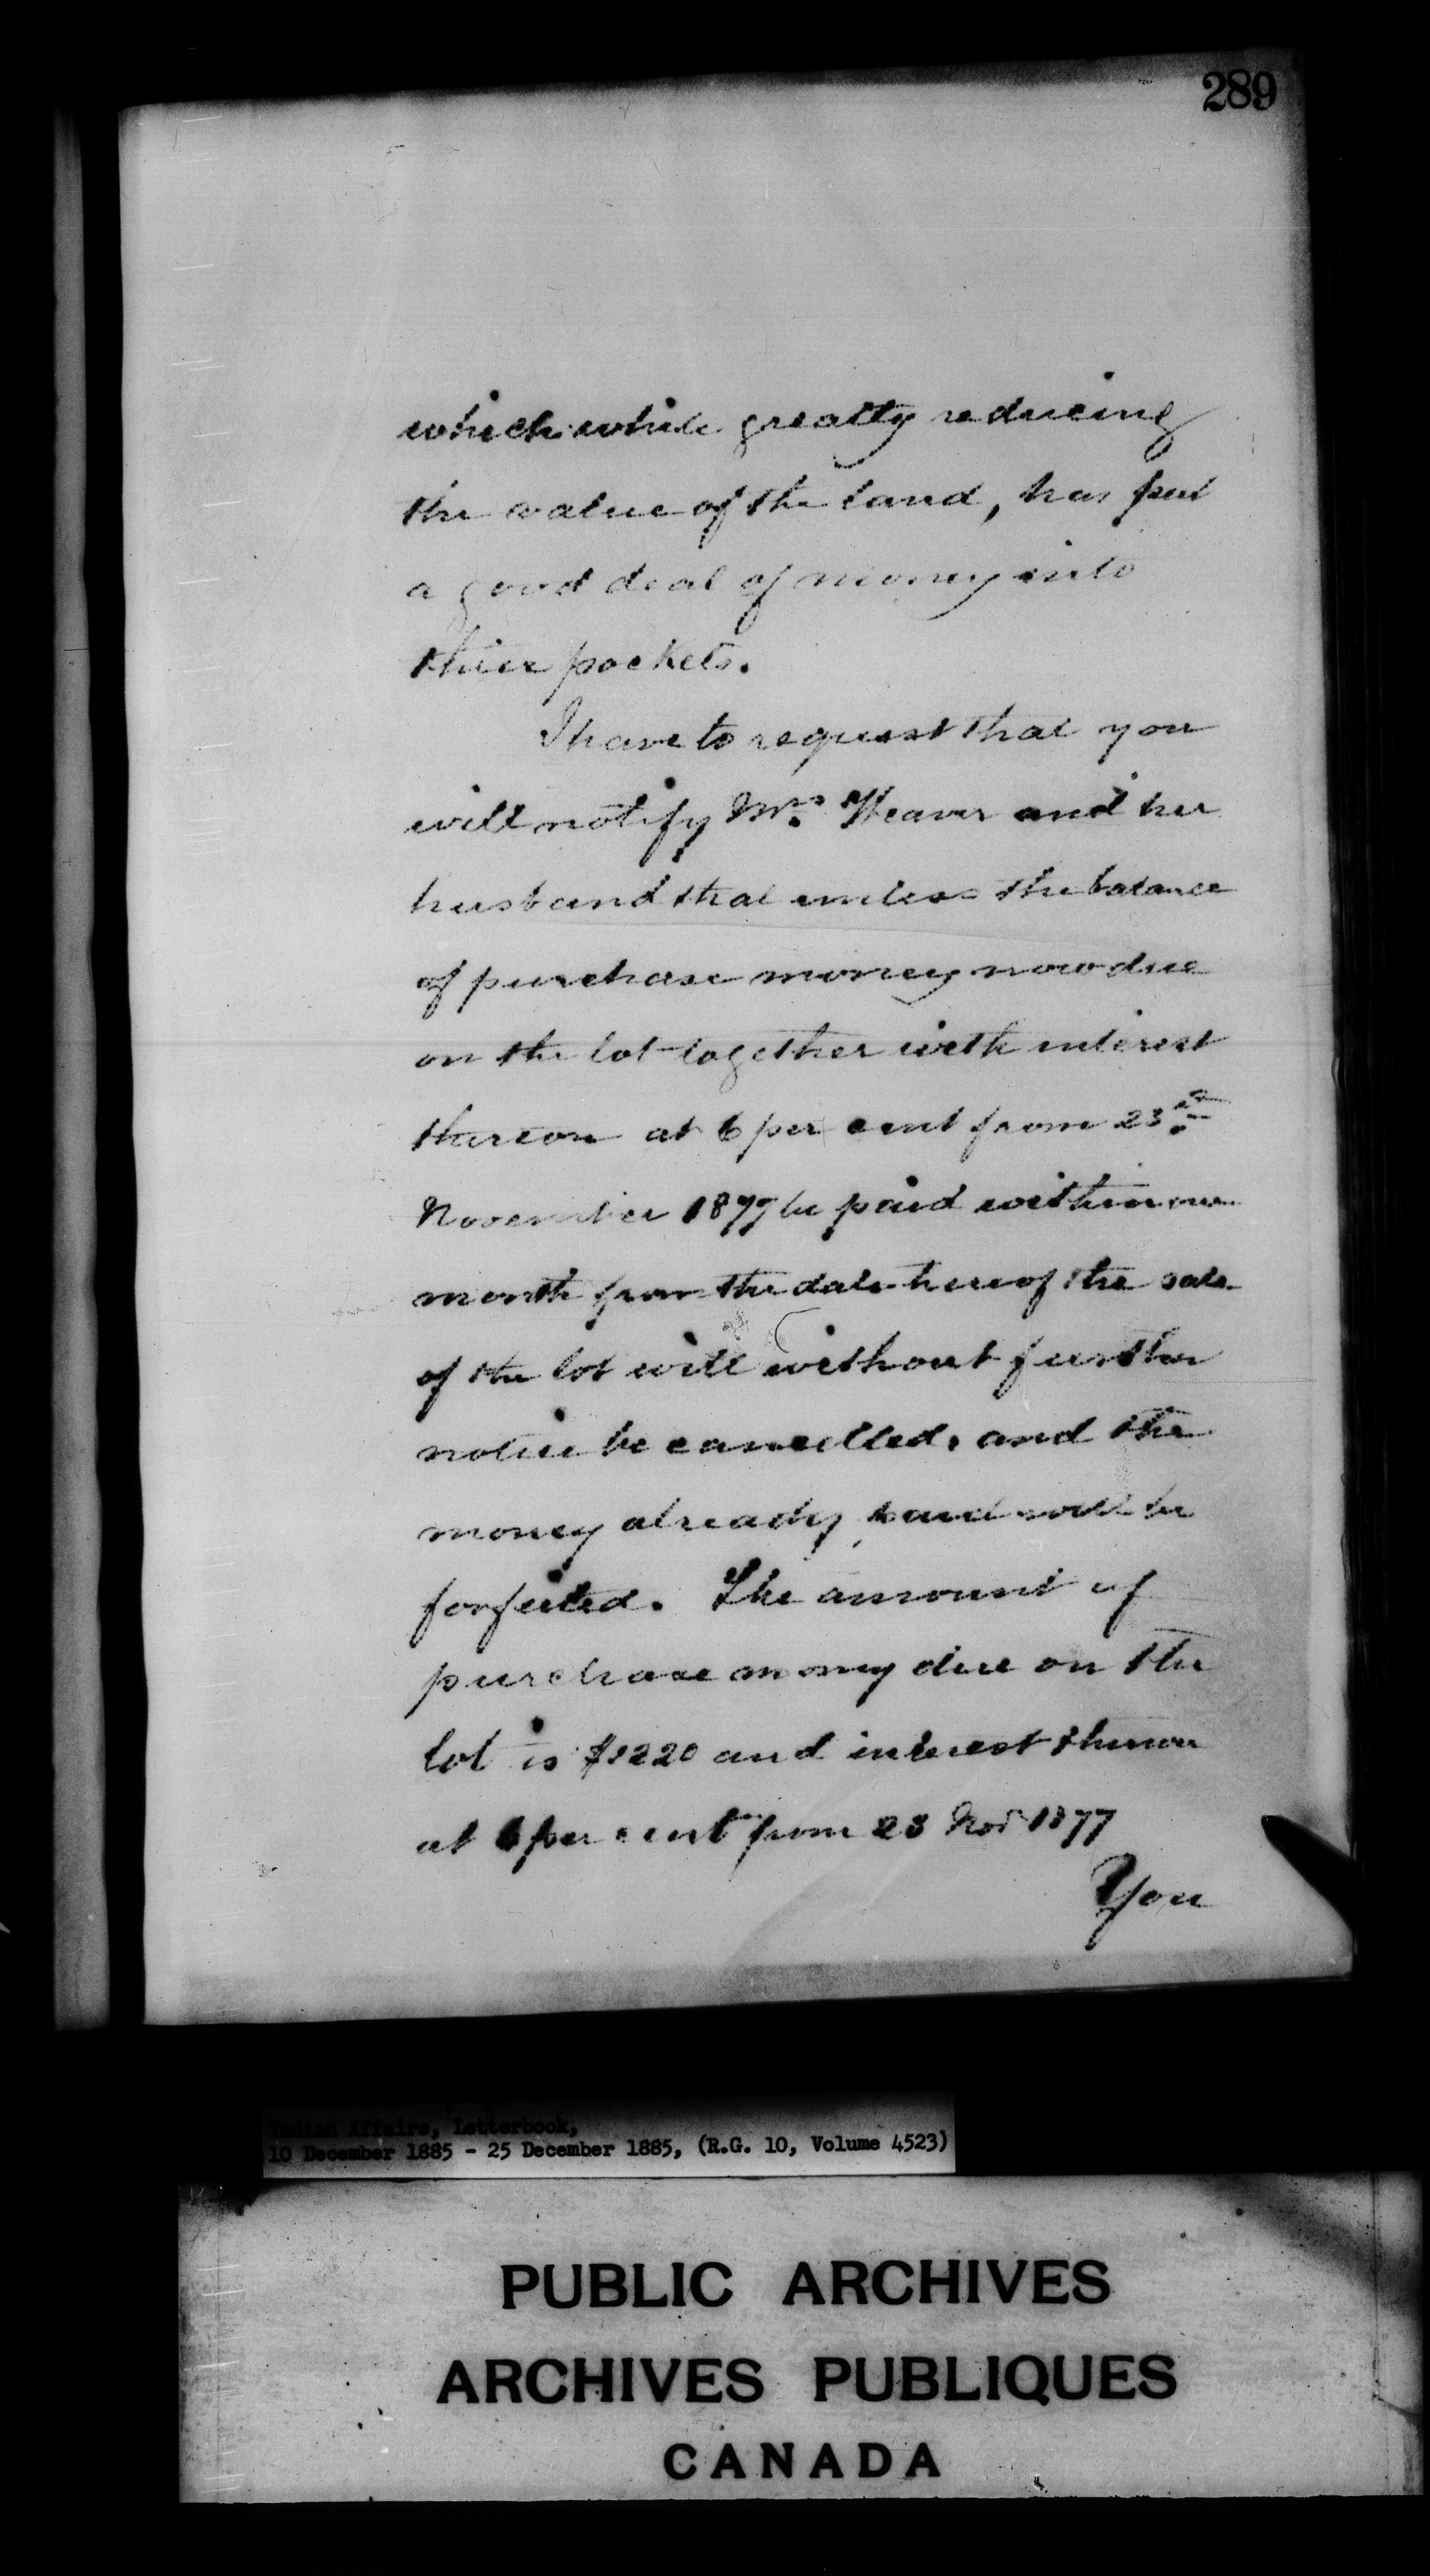 289
which while greatly reducing
the value of the land, has put
a good deal of money into
thier pockets.
I have to request that you
will notify Mrs. Weaver and her
husband that unless the balance
of purchase money now due
on the lot together with interest
thereon at 6 per cent from 23rd
November 1877 be paid within one
month from the date hereof the sale
of the lot will without further
notice be cancelled, and the
money already paid will be
forfeited. The amount of
purchase money due on the
lot is $1220 and interest thereon
at 6 per cent from 23 Nov 1877
You
Indian Affairs, Letterbook,
10 December 1885 - 25 December 1885, (R.G. 10, Volume 4523)
PUBLIC ARCHIVES
ARCHIVES PUBLIQUES
CANADA